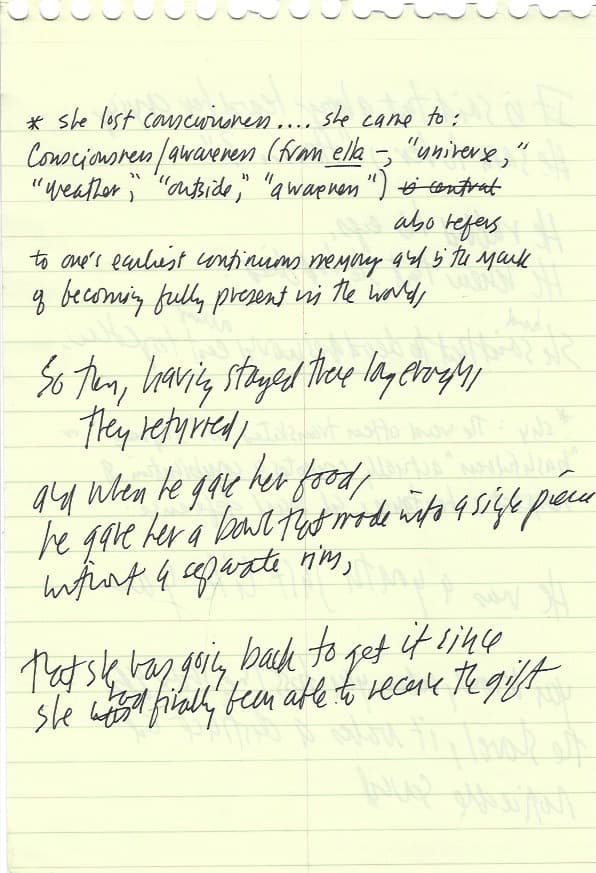 * she lost consciousness.... she came to:
Consciousness/awareness (from ella-, "universe,"
"weather," "outside," "awareness") is central
also refers
to one's earliest continuous memory and is the mark
of becoming fully present in the world,
So then, having stayed there long enough,
they returned,
and when he gave her food,
he gave her a bowl that made into a single piece
without a separate rim,
that she was going back to get it since
she was had finally been able to receive the gift